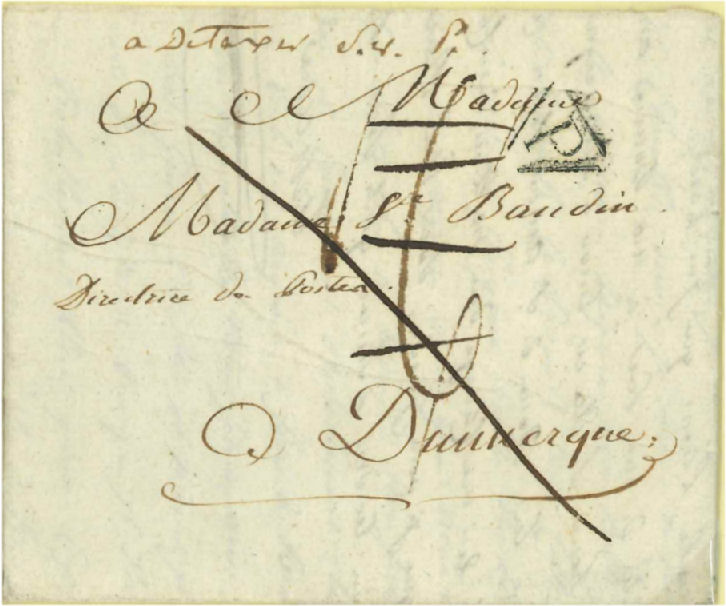 a Detaxer S.r. P.
A Madame
P
Madame St Baudin
Directrice de Postes.
A Dunkerque.